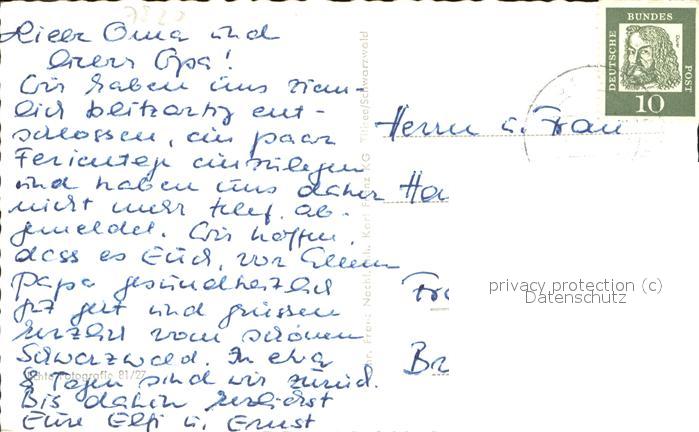 Liebe Oma und
lieber Opa!
Wir haben uns ziem-
lich blitzartig ent-
schlossen, ein paar
Ferientage einzulegen
und haben uns daher
nicht mehr telef. ab-
gemeldet. Wir hoffen,
dass es Euch, vor Allem
Papa gesundheitlich
gut geht und grüssen
herzlich vom schönen
Schwarzwald. In etwa
8 Tagen sind wir zurück.
Bis dahin herzlichst
Eure Elfi u. Ernst
Echte Fotografie 81/27
Franz Nachf. Inh. Karl Franz KG Titisee/Schwarzwald
Herrn u. Frau
Ha
Fr
Br
DEUTSCHE
BUNDES
POST
Dürer
10
privacy protection (c)
Datenschutz